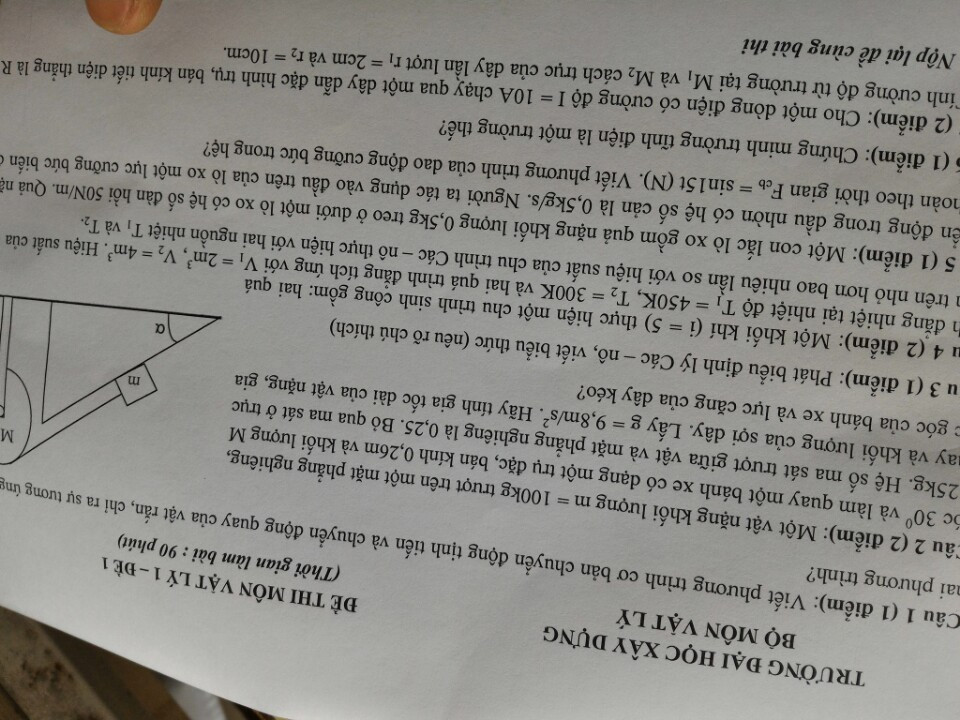 TRƯỜNG ĐẠI HỌC XÂY DỰNG
BỘ MÔN VẬT LÝ
ĐỀ THI MÔN VẬT LÝ 1 – ĐỀ 1
(Thời gian làm bài : 90 phút)
Câu 1 (1 điểm): Viết phương trình cơ bản chuyển động tịnh tiến và chuyển động quay của vật rắn, chỉ ra sự tương ứng
hai phương trình?
Câu 2 (2 điểm): Một vật nặng khối lượng m = 100kg trượt trên một mặt phẳng nghiêng,
30⁰ và làm quay một bánh xe có dạng một trụ đặc, bán kính 0,26m và khối lượng M
25kg. Hệ số ma sát trượt giữa vật và mặt phẳng nghiêng là 0,25. Bỏ qua ma sát ở trục
và khối lượng của sợi dây. Lấy g = 9,8m/s². Hãy tính gia tốc dài của vật nặng, gia
góc của bánh xe và lực căng của dây kéo?
3 (1 điểm): Phát biểu định lý Các – nô, viết biểu thức (nêu rõ chú thích)
4 (2 điểm): Một khối khí (i = 5) thực hiện một chu trình sinh công gồm: hai quá
đẳng nhiệt tại nhiệt độ T₁ = 450K, T₂ = 300K và hai quá trình đẳng tích ứng với V₁ = 2m³, V₂ = 4m³. Hiệu suất của
trên nhỏ hơn bao nhiêu lần so với hiệu suất của chu trình Các – nô thực hiện với hai nguồn nhiệt T₁ và T₂.
5 (1 điểm): Một con lắc lò xo gồm quả nặng khối lượng 0,5kg treo ở dưới một lò xo có hệ số đàn hồi 50N/m. Quả
động trong dầu nhờn có hệ số cản là 0,5kg/s. Người ta tác dụng vào đầu trên của lò xo một lực cưỡng bức biến
hoàn theo thời gian F_cb = sin15t (N). Viết phương trình của dao động cưỡng bức trong hệ?
(1 điểm): Chứng minh trường tĩnh điện là một trường thế?
(2 điểm): Cho một dòng điện có cường độ I = 10A chạy qua một dây dẫn đặc hình trụ, bán kính tiết diện thẳng là R
Tính cường độ từ trường tại M₁ và M₂ cách trục của dây lần lượt r₁ = 2cm và r₂ = 10cm.
Nộp lại đề cùng bài thi
m
α
M